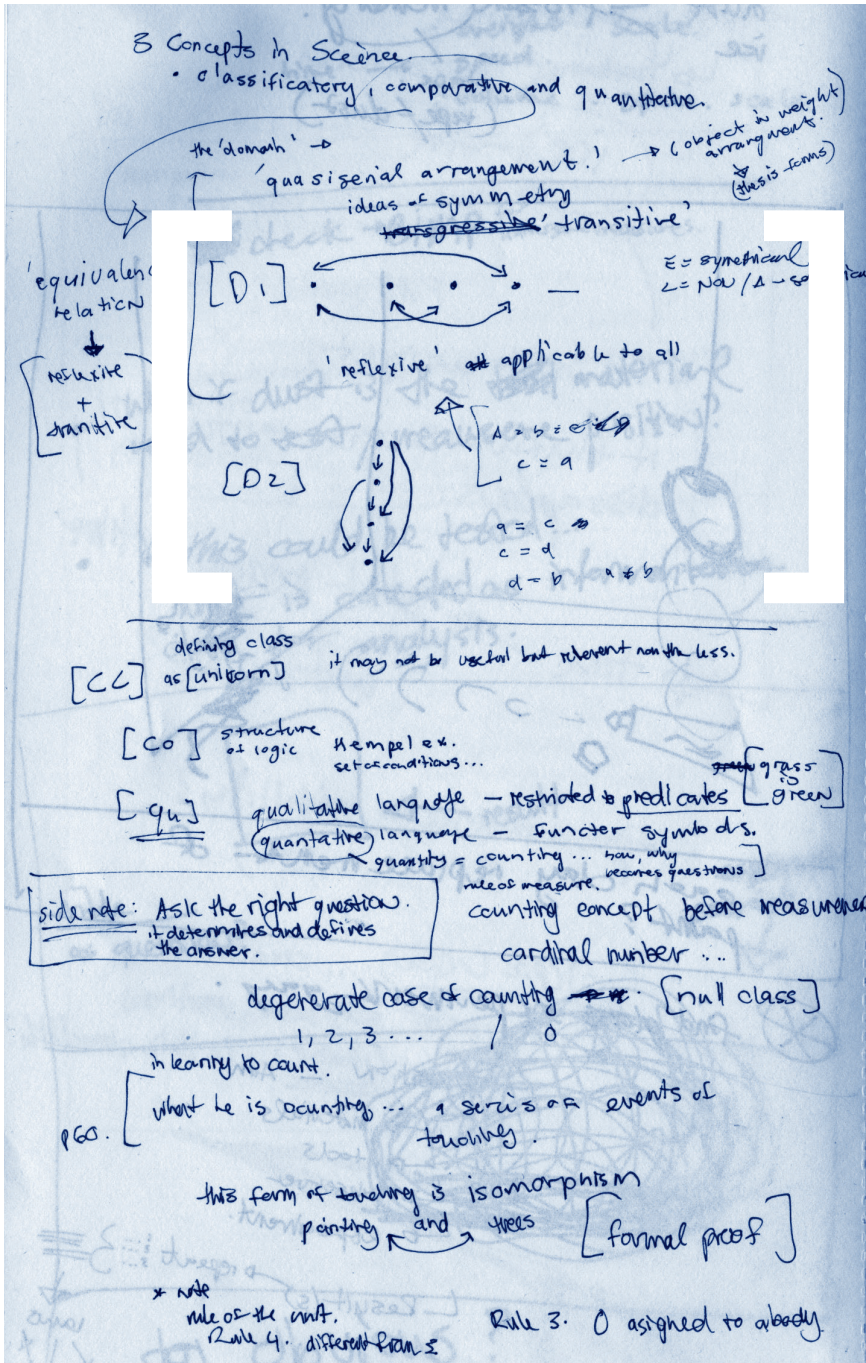 3 Concepts in Sceince.
• classificatory, comparative and quantitative.
the 'domain' →
'quasiserial arrangement.' → (object in weight arrangment.
(thesis forms)
ideas of symmetry
transgressive 'transitive'
'equivalenc
relation
reflexive
+
tranitive
[D1]
E = symetrical
L = Non / A - 
'reflexive' applicable to all
A = b = c
c = a
[D2]
a = c
c = d
d = b a ≠ b
defining class
[CC] as [unikorn] it may not be useful but relevent non the less.
[Co] structure of logic Hempel ex.
set of conditions...
[qu] qualitative language – restricted to predicates [grass is green]
quantative language – Functer symbols.
quantity = counting ... how, why becomes questions]
rule of measure.
side note: Ask the right question.
it determines and defines
the answer.
counting concept before measuremen
cardinal number ...
degenerate case of counting [null class]
1, 2, 3 ... / 0
in learning to count.
p60. what he is ocunting ... a seris of events of
touching.
this form of touching is isomorphism
pointing and trees [formal proof]
* note
rule of the unit.
Rule 4. different from Σ
Rule 3. 0 asigned to abody.